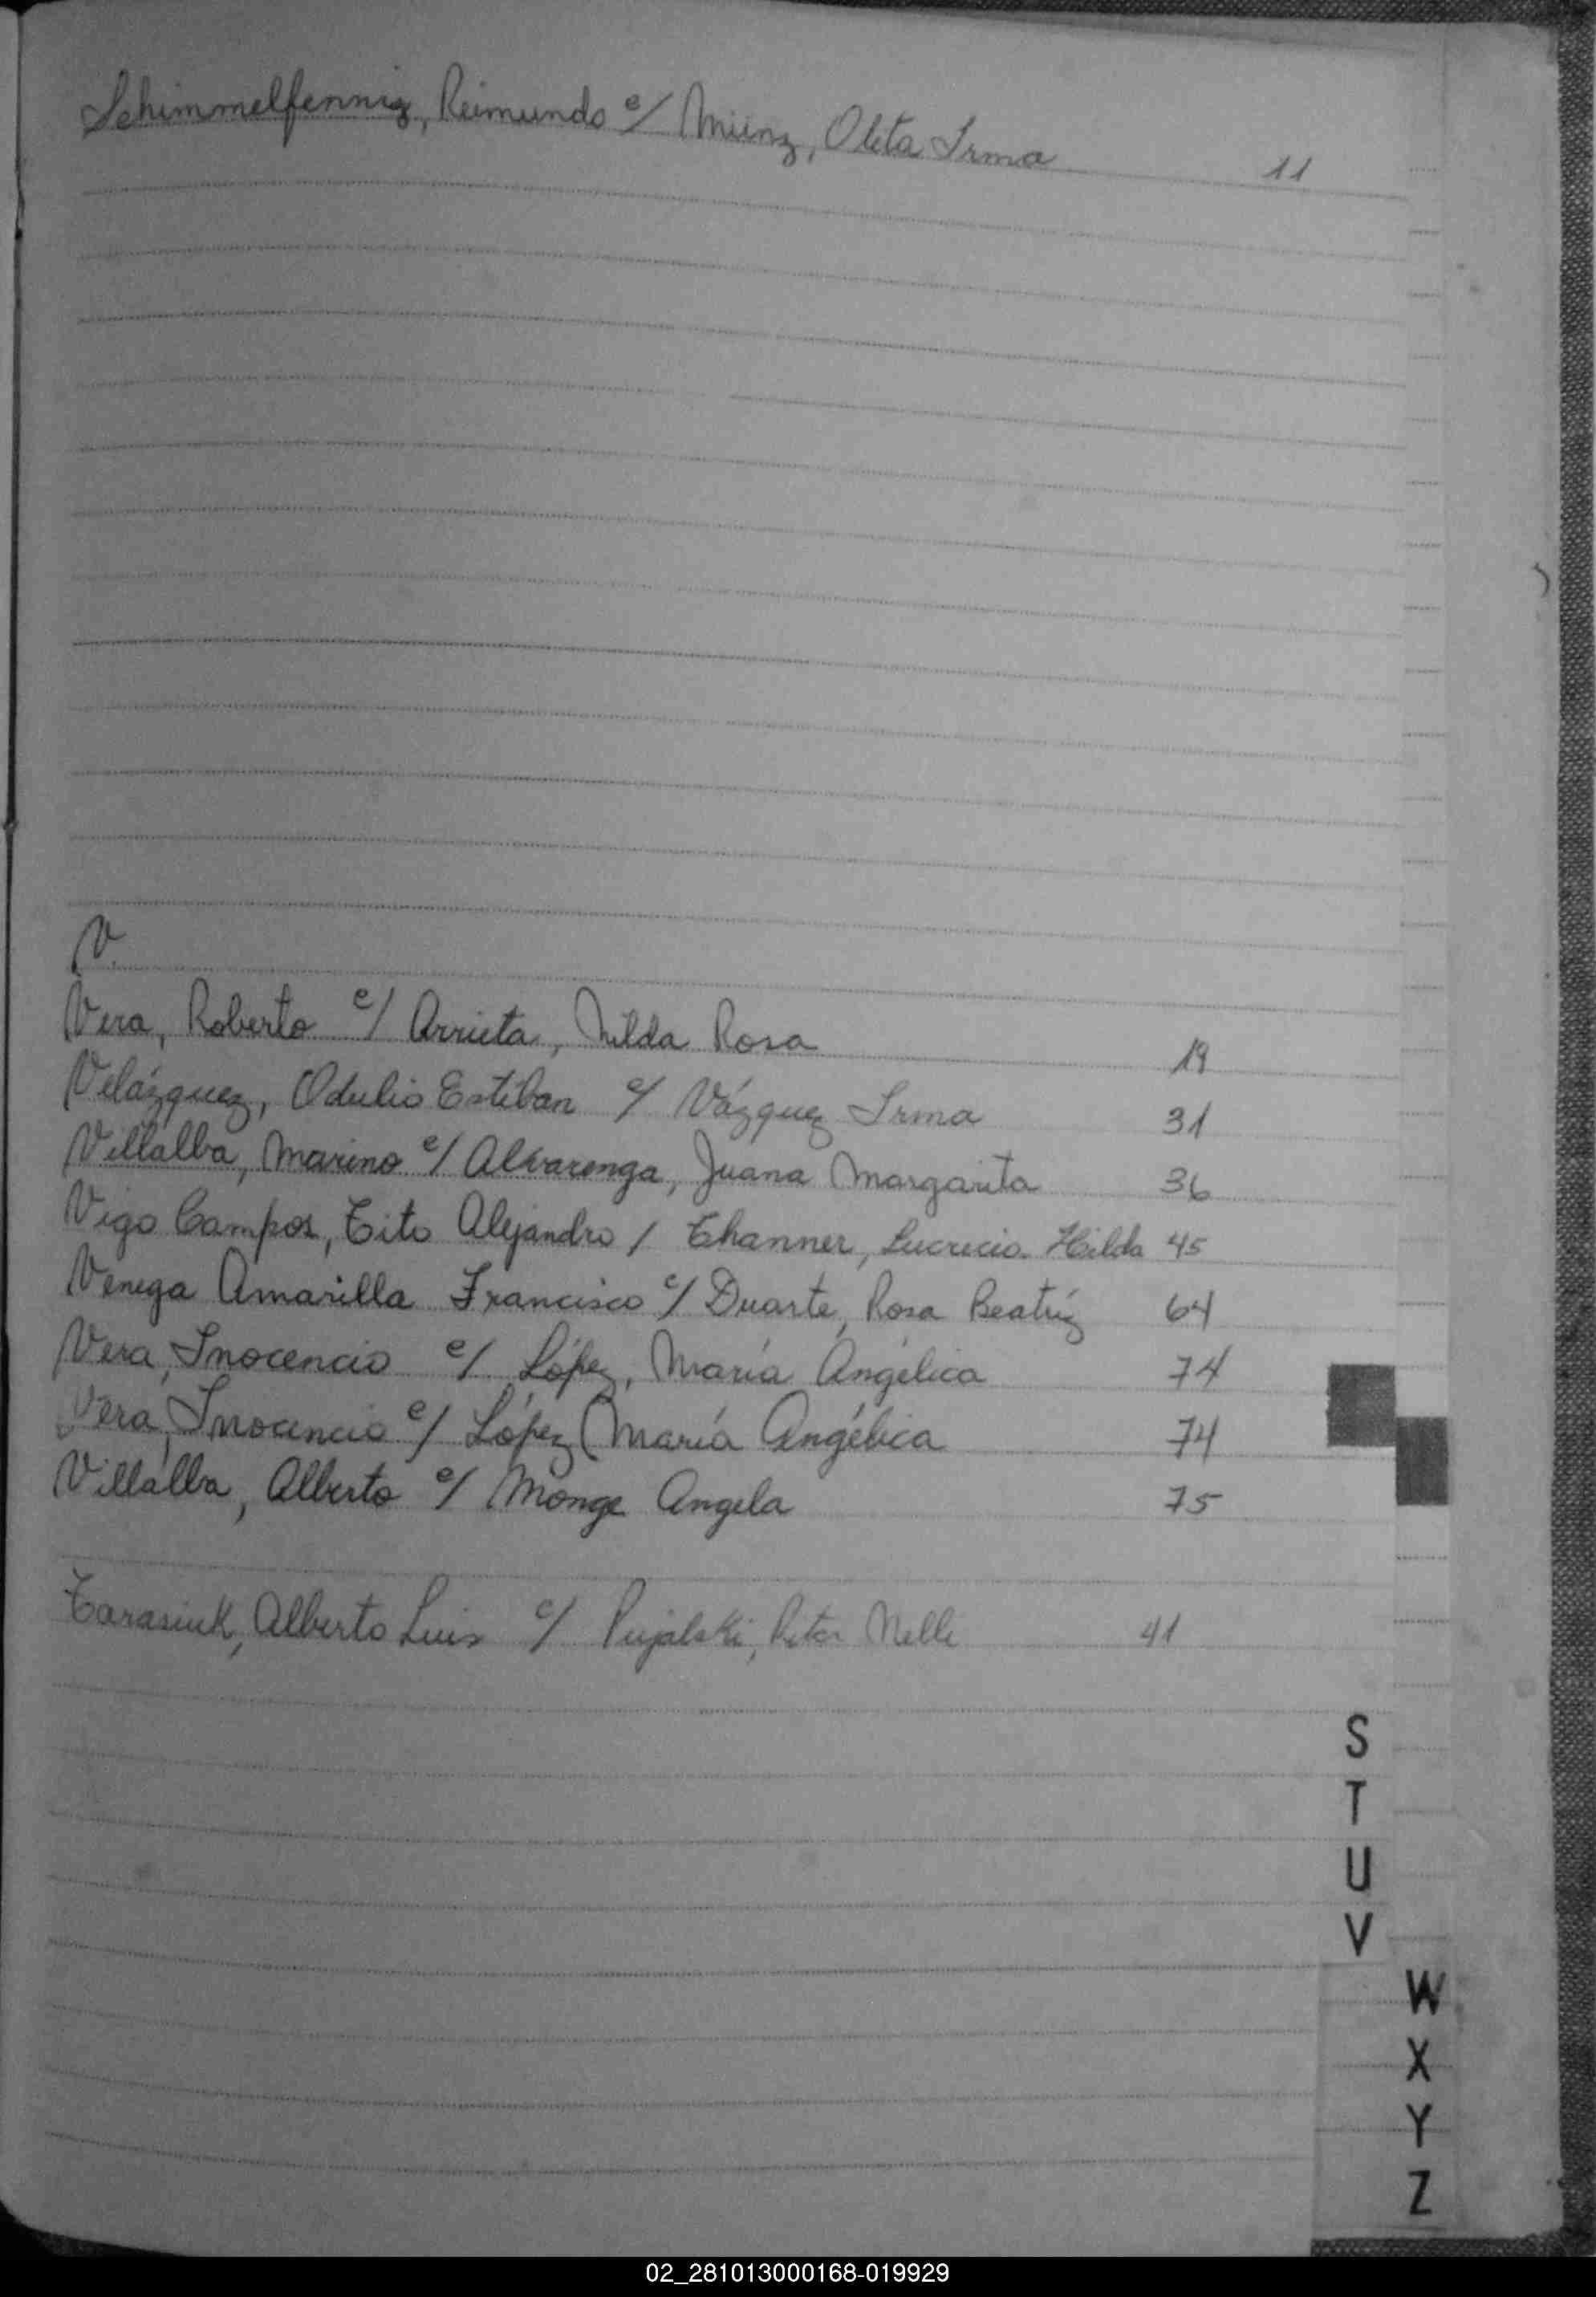 Schimmelfennig, Reimundo c/ Münz, Oleta Irma 11
V.
Vera, Roberto c/ Arrieta, Nilda Rosa 19
Velázquez, Odulio Esteban c/ Vázquez Irma 31
Villalba, Marino c/ Alvarenga, Juana Margarita 36
Vigo Campos, Tito Alejandro / Thanner, Lucrecia Hilda 45
Venega Amarilla Francisco c/ Duarte, Rosa Beatríz 64
Vera, Inocencio c/ López, María Angélica 74
Vera, Inocencio c/ López María Angélica 74
Villalba, Alberto c/ Monge Angela 75
Tarasiuk, Alberto Luis c/ Pujalski, Rita Nelli 41
S
T
U
V
W
X
Y
Z
02_281013000168-019929